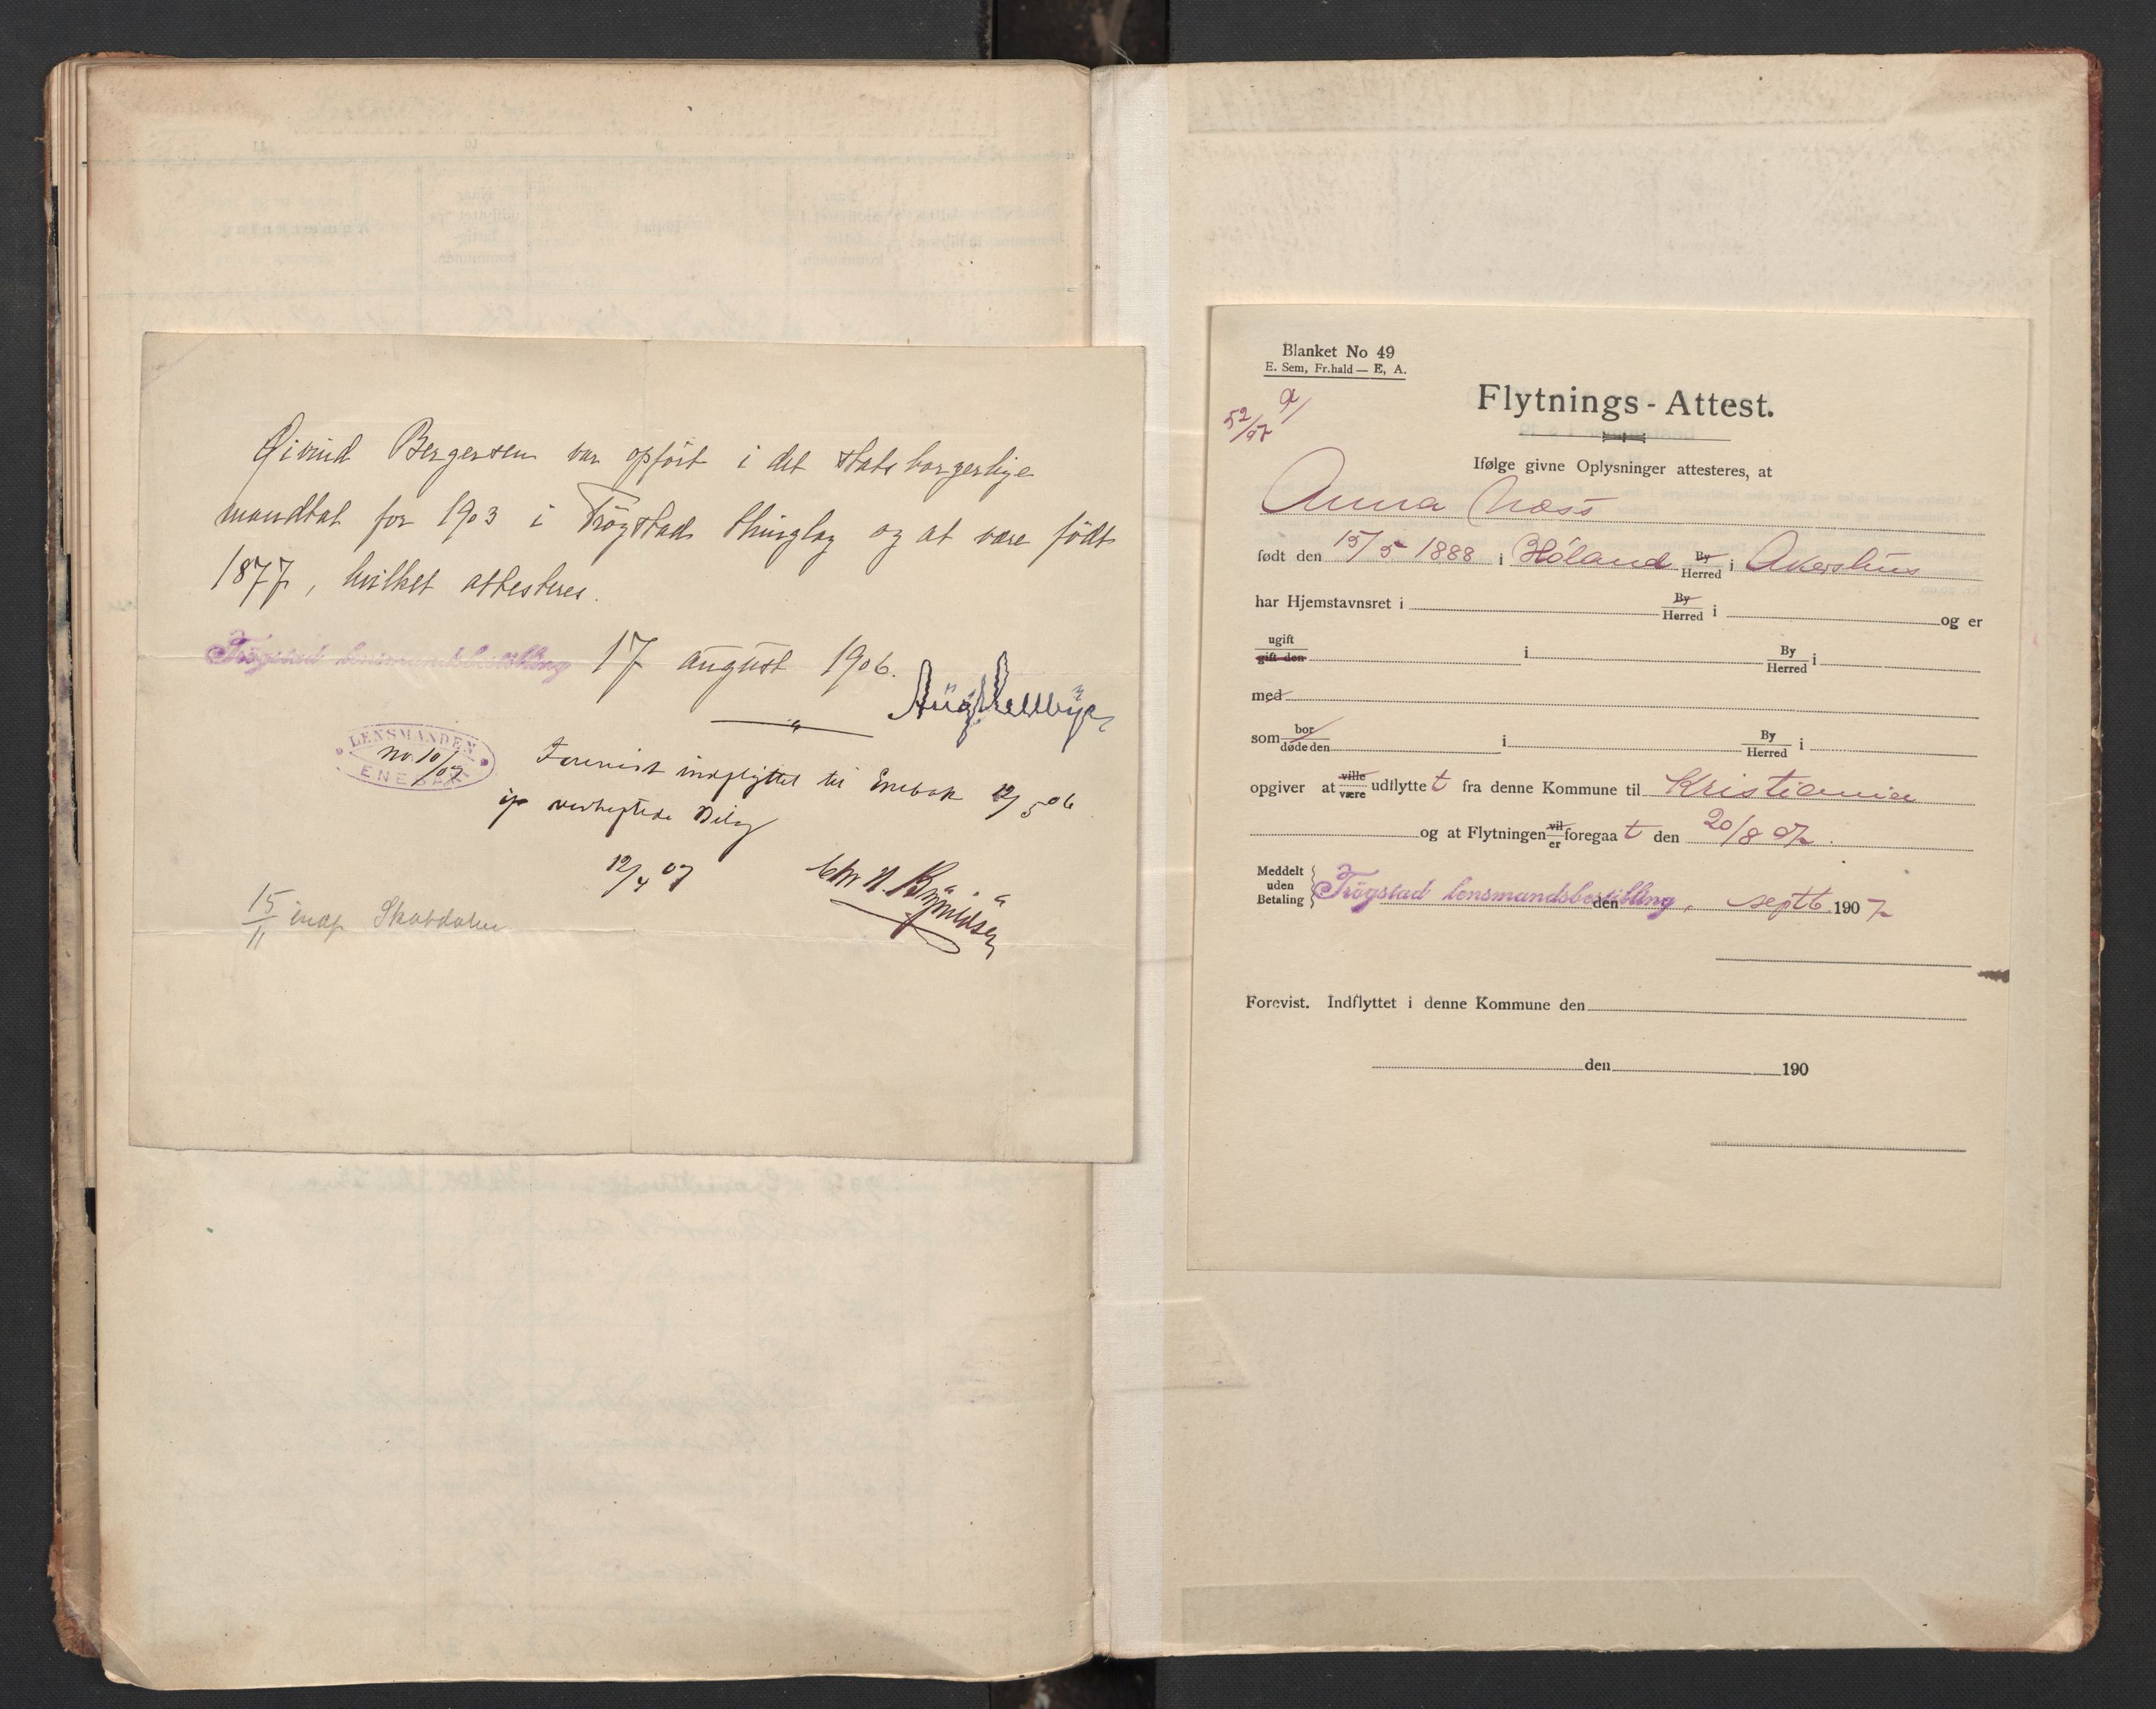 Øivind Bergersen var opført i det statsborgerlige
mandtal for 1903 i Trögstad thinglag og at være født
1877, hvilket attesteres.
Trögstad lensmandsbestilling 17 august 1906.
LENSMANDEN
No. 10/07
ENEBAK
Forevist indflyttet til Enebak 12/5 06
vedheftede Bilag
12/4 07
15/11 Skabdalen
Blanket No 49
E. Sem, Fr.hald — E, A.
52/07
Flytnings-Attest.
Ifølge givne Oplysninger attesteres, at
Anna Næss
født den 15/5 1888 i Høland By Herred i Akershus
har Hjemstavnsret i By Herred i og er
ugift gift den i By Herred i
med
som bor døde den i By Herred i
opgiver at ville være udflyttet fra denne Kommune til Kristiania
og at Flytningen vil er foregaat den 20/8 07.
Meddelt uden Betaling Trögstad lensmandsbestilling, den septb. 1907
Forevist. Indflyttet i denne Kommune den
den 190